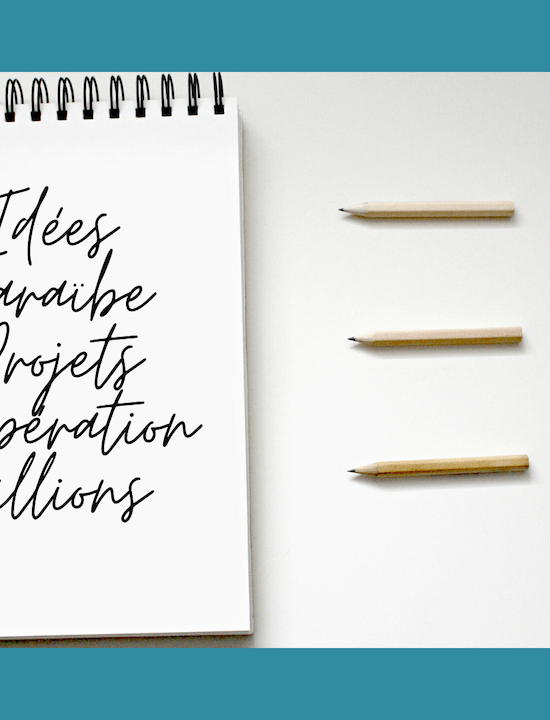 Idées
araïbe
Projets
pération
llions